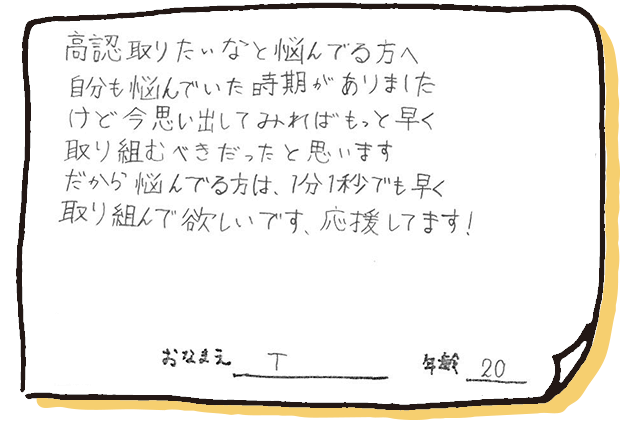 高認取りたいなと悩んでる方へ
自分も悩んでいた時期がありました
けど今思い出してみればもっと早く
取り組むべきだったと思います
だから悩んでる方は、1分1秒でも早く
取り組んで欲しいです、応援してます!
おなまえ T 年齢 20